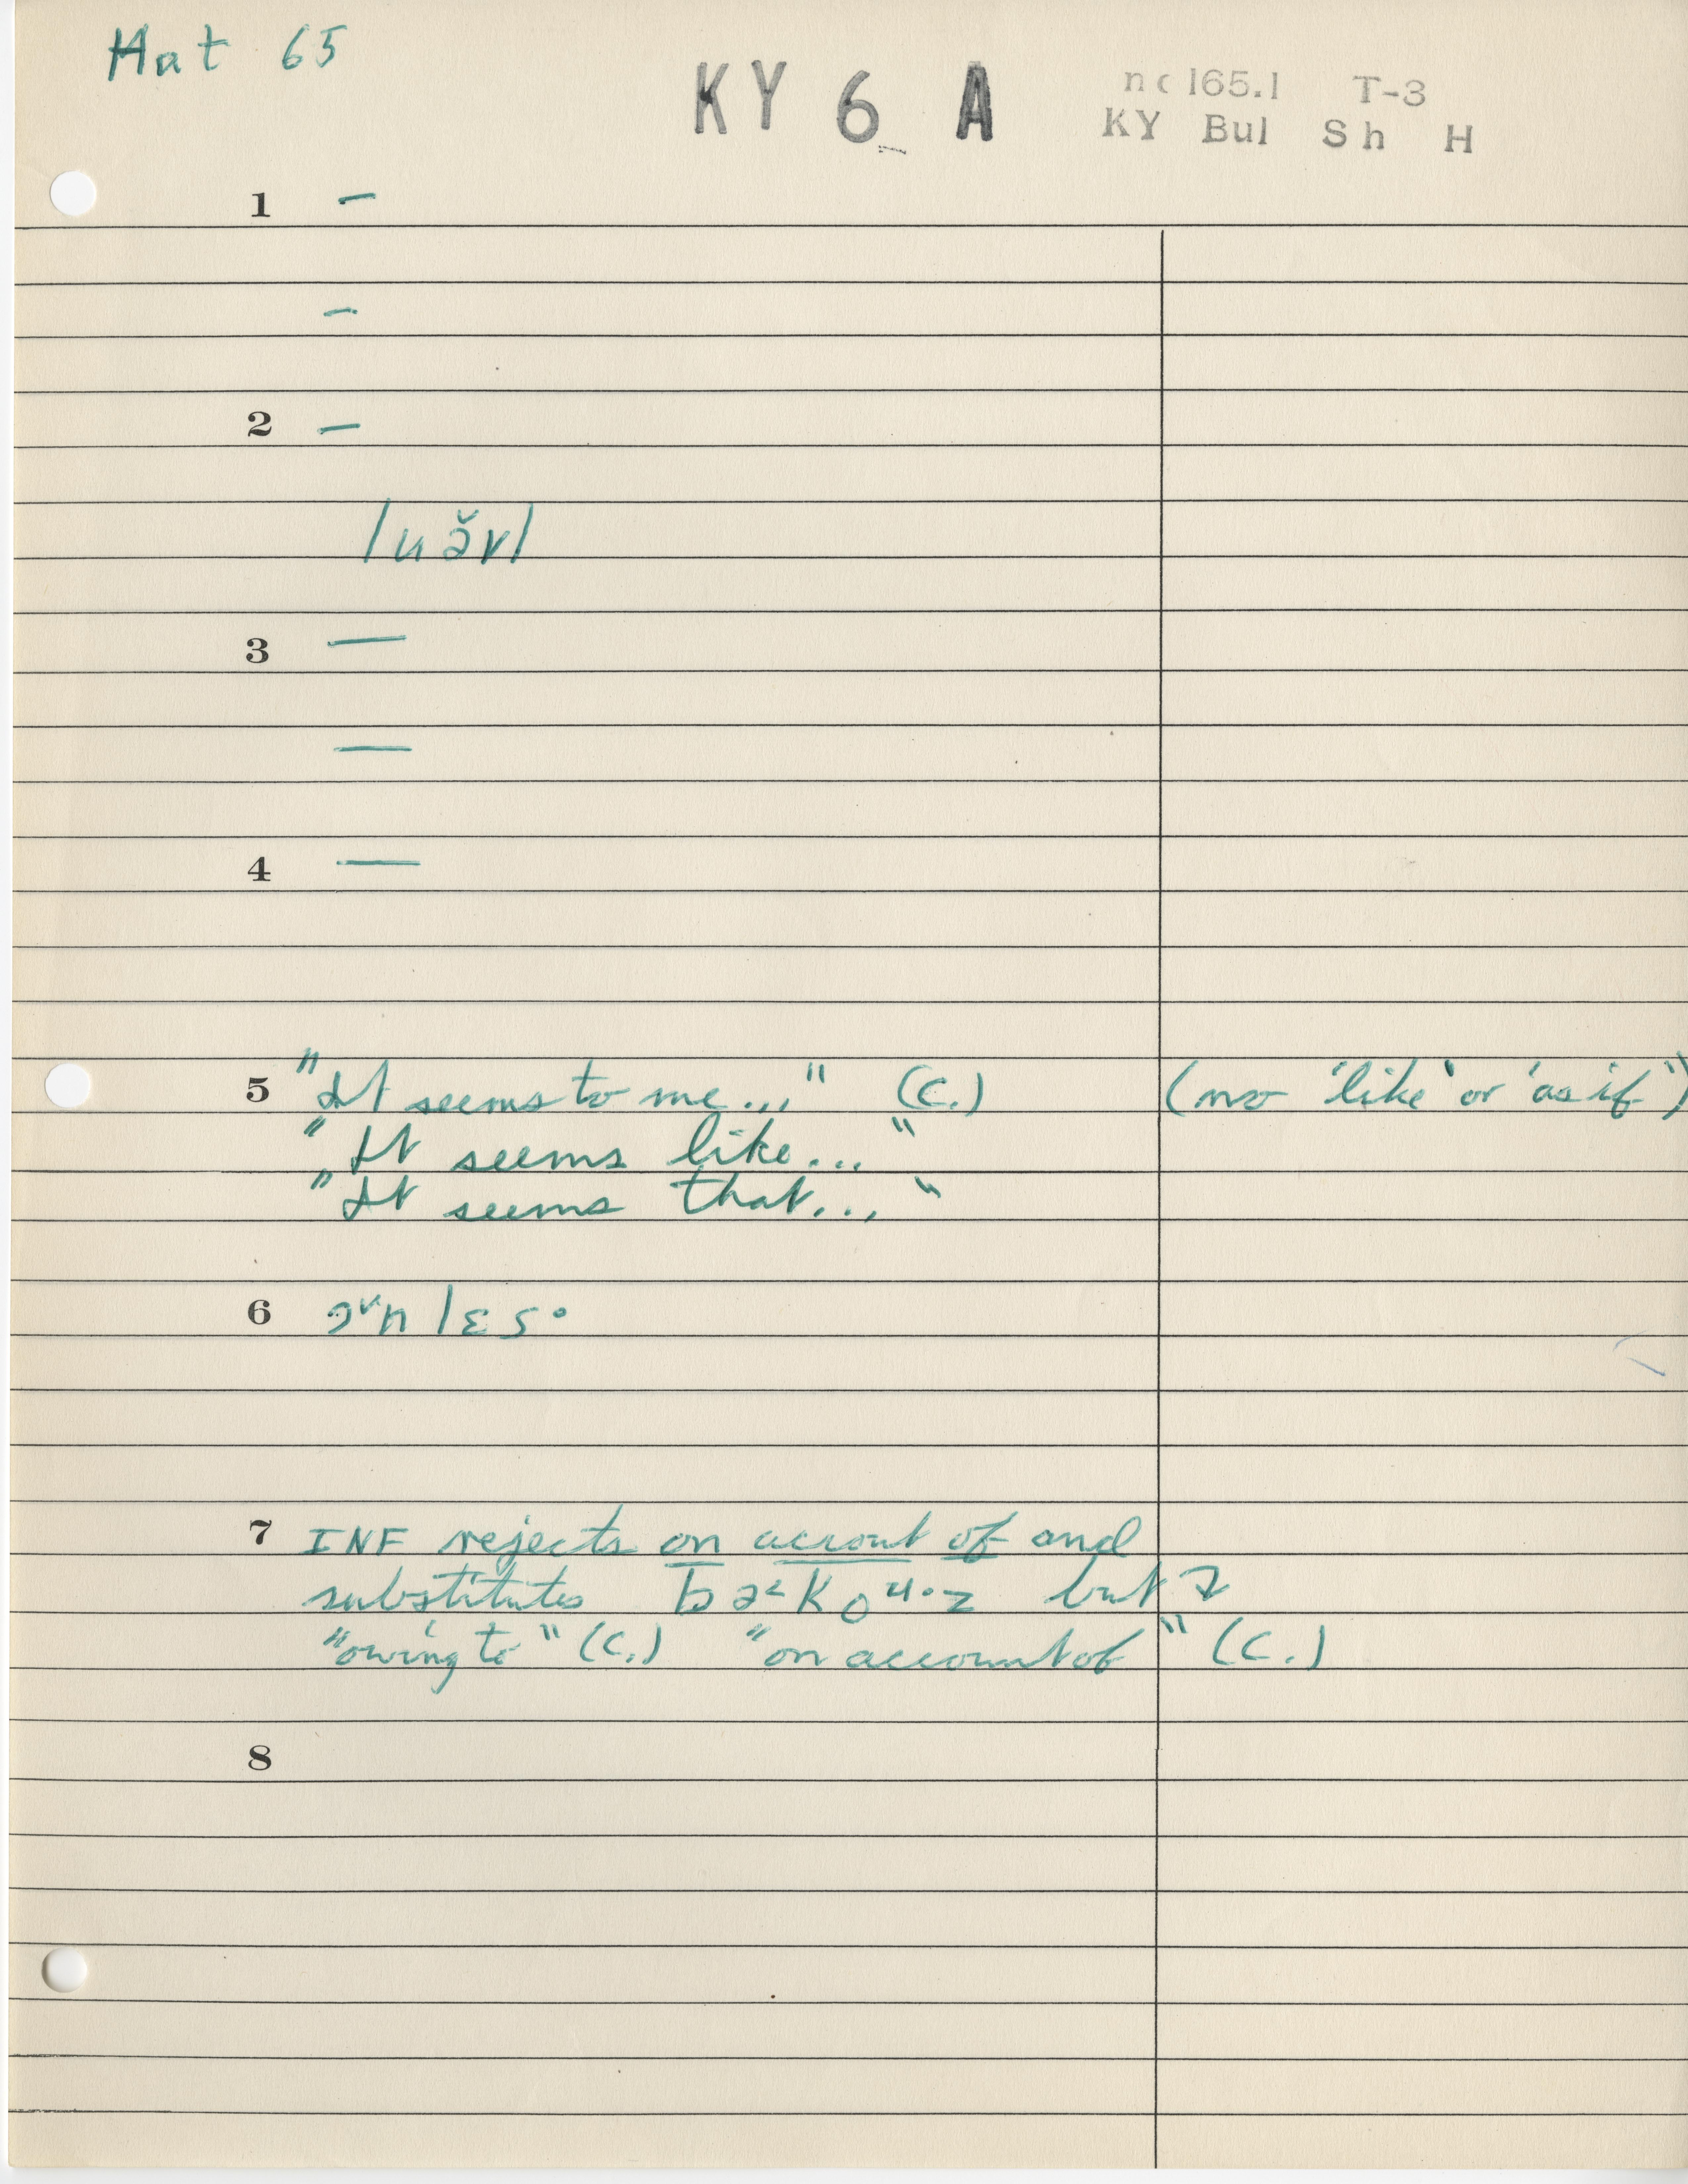 Hat 65
KY 6 A
nc 165.1 T-3
KY Bul Sh H
1 —
—
2 —
/uə̆v/
3 —
—
4 —
5 "It seems to me..." (C.) (no 'like' or 'as if')
"It seems like..."
"It seems that..."
6
7 INF rejects on account of and
substitutes but
"owing to" (C.) "on account of" (C.)
8